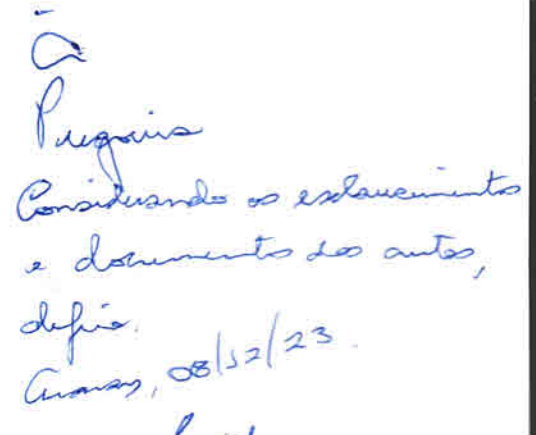 À
Pregoeira
Considerando os esclarecimentos
e documentos dos autos,
defiro.
08/12/23.